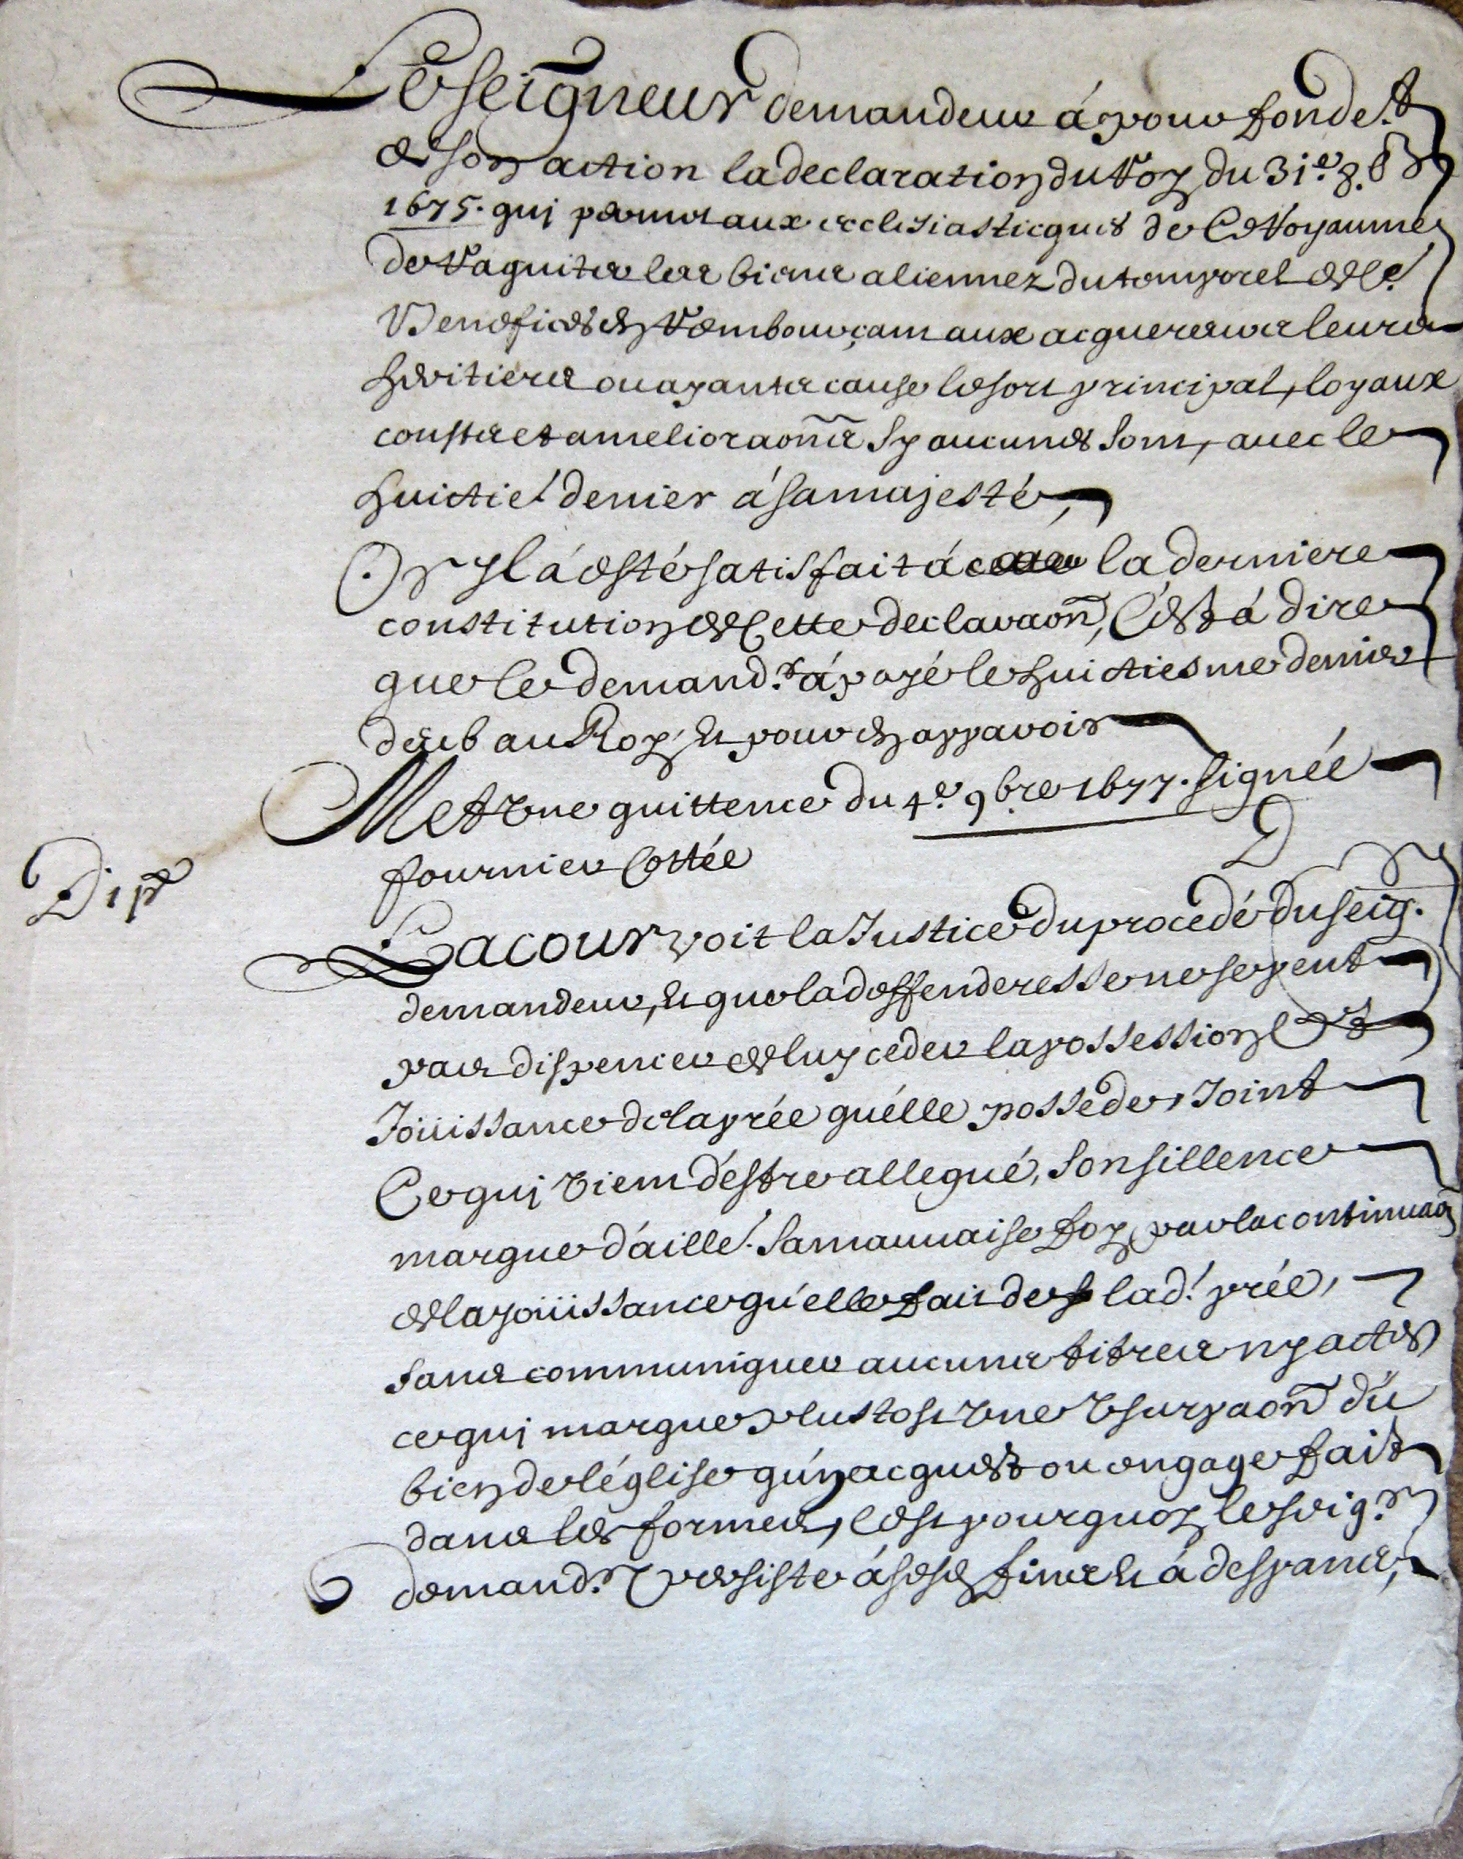 Le seigneur demandeur á pour fonde.t
de son action la declaration du Roy du 31.e 8.bre
1675. qui permet aux ecclesiasticques de ce Royaume
de Raquiter les biens aliennez du temporel de le.s
Benefices en Rembourçant aux acquereurs leurs
heritiers ou ayants cause le sort principal, loyaux
cousts et amelioraõns sy aucunes sont, avec le
huictie.' denier á sa majesté,
Or Il á esté satisfait á la derniere
constitution de cette declaraõn, C'ést á dire
que le demand.r á payé le huictiesme denier
deub au Roy, Et pour en apparoir
Met Une quittence du 4.e 9.bre 1677. signée
fournier Cottée D
D 1 p.e
La cour voit la Justice du procedé du seig.r
demandeur, Et que la deffenderesse ne se peut
pas dispencer de luy ceder la possession Et
Joüissance de la prée qu'élle possede, Joint
Ce qui Vient d'éstre allegué, son sillence
marque d'áille.' sa mauuaise foy, par la continuaõn
de la joüissance qu'elle fait de lad.' prée,
sans communiquer aucuns titres ny actes
ce qui marque plustost Une Vsurpaõn du
bien de l'église qu'un acquest ou engage fait
dans les formes, C'est pourquoy le seig.r
demand.r Persiste á ses fins Et á despans,